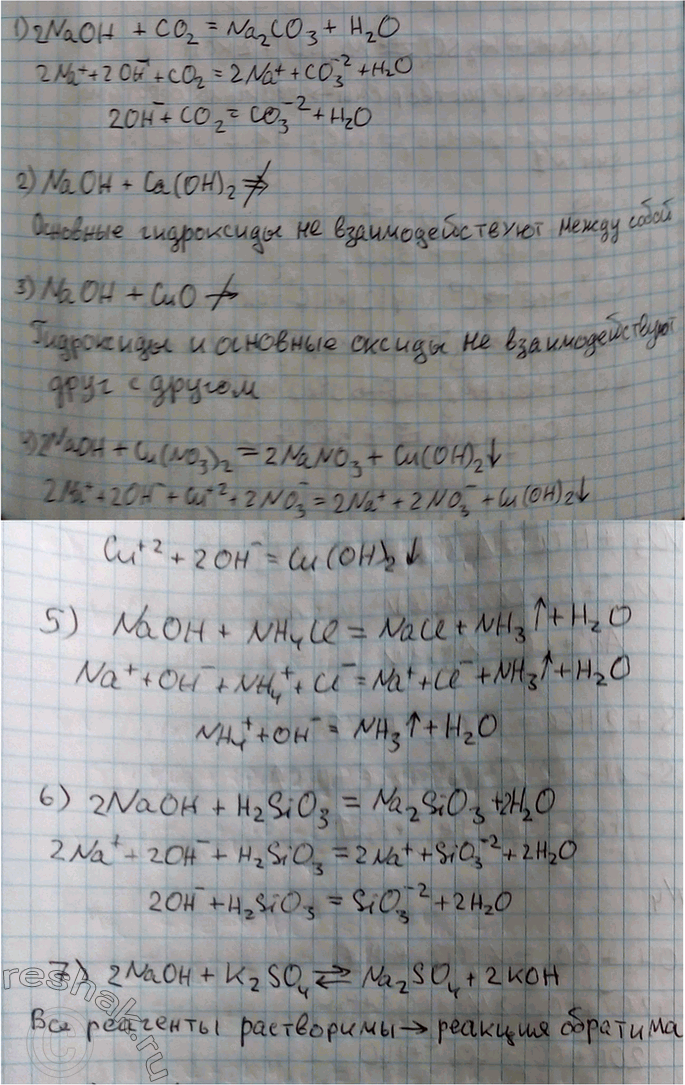 1) 2NaOH + CO₂ = Na₂CO₃ + H₂O
2Na⁺ + 2OH⁻ + CO₂ = 2Na⁺ + CO₃⁻² + H₂O
2OH⁻ + CO₂ = CO₃⁻² + H₂O
2) NaOH + Ca(OH)₂ ⇏
Основные гидроксиды не взаимодействуют между собой
3) NaOH + CuO ↛
Гидроксиды и основные оксиды не взаимодействуют
друг с другом
4) 2NaOH + Cu(NO₃)₂ = 2NaNO₃ + Cu(OH)₂↓
2Na⁺ + 2OH⁻ + Cu⁺² + 2NO₃⁻ = 2Na⁺ + 2NO₃⁻ + Cu(OH)₂↓
Cu⁺² + 2OH⁻ = Cu(OH)₂↓
5) NaOH + NH₄Cl = NaCl + NH₃↑ + H₂O
Na⁺ + OH⁻ + NH₄⁺ + Cl⁻ = Na⁺ + Cl⁻ + NH₃↑ + H₂O
NH₄⁺ + OH⁻ = NH₃↑ + H₂O
6) 2NaOH + H₂SiO₃ = Na₂SiO₃ + 2H₂O
2Na⁺ + 2OH⁻ + H₂SiO₃ = 2Na⁺ + SiO₃⁻² + 2H₂O
2OH⁻ + H₂SiO₃ = SiO₃⁻² + 2H₂O
7) 2NaOH + K₂SO₄ ⇄ Na₂SO₄ + 2KOH
Все реагенты растворимы → реакция обратима
reshak.ru